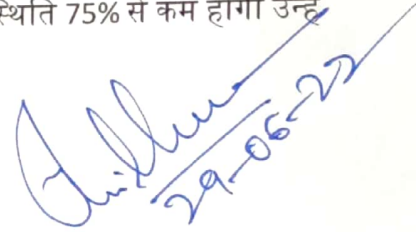 स्थिति 75% से कम होगी उन्हें
29-06-22